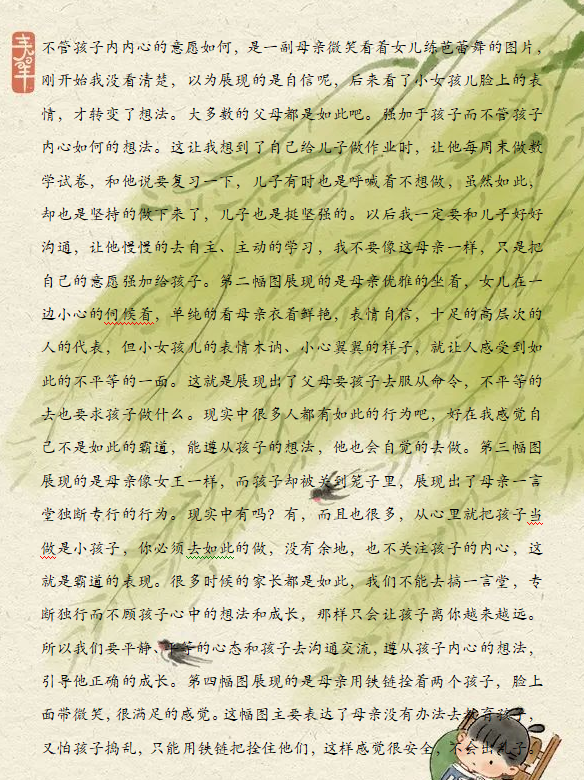 不管孩子内内心的意愿如何，是一副母亲微笑看着女儿练芭蕾舞的图片，
刚开始我没看清楚，以为展现的是自信呢，后来看了小女孩儿脸上的表
情，才转变了想法。大多数的父母都是如此吧。强加于孩子而不管孩子
内心如何的想法。这让我想到了自己给儿子做作业时，让他每周末做数
学试卷，和他说要复习一下，儿子有时也是呼喊着不想做，虽然如此，
却也是坚持的做下来了，儿子也是挺坚强的。以后我一定要和儿子好好
沟通，让他慢慢的去自主、主动的学习，我不要像这母亲一样，只是把
自己的意愿强加给孩子。第二幅图展现的是母亲优雅的坐着，女儿在一
边小心的伺候着，单纯的看母亲衣着鲜艳，表情自信，十足的高层次的
人的代表，但小女孩儿的表情木讷、小心翼翼的样子，就让人感受到如
此的不平等的一面。这就是展现出了父母要孩子去服从命令，不平等的
去也要求孩子做什么。现实中很多人都有如此的行为吧，好在我感觉自
己不是如此的霸道，能遵从孩子的想法，他也会自觉的去做。第三幅图
展现的是母亲像女王一样，而孩子却被关到笼子里，展现出了母亲一言
堂独断专行的行为。现实中有吗？有，而且也很多，从心里就把孩子当
做是小孩子，你必须去如此的做，没有余地，也不关注孩子的内心，这
就是霸道的表现。很多时候的家长都是如此，我们不能去搞一言堂，专
断独行而不顾孩子心中的想法和成长，那样只会让孩子离你越来越远。
所以我们要平静、平等的心态和孩子去沟通交流，遵从孩子内心的想法，
引导他正确的成长。第四幅图展现的是母亲用铁链拴着两个孩子，脸上
面带微笑，很满足的感觉。这幅图主要表达了母亲没有办法去教育孩子，
又怕孩子捣乱，只能用铁链把拴住他们，这样感觉很安全，不会出乱子。